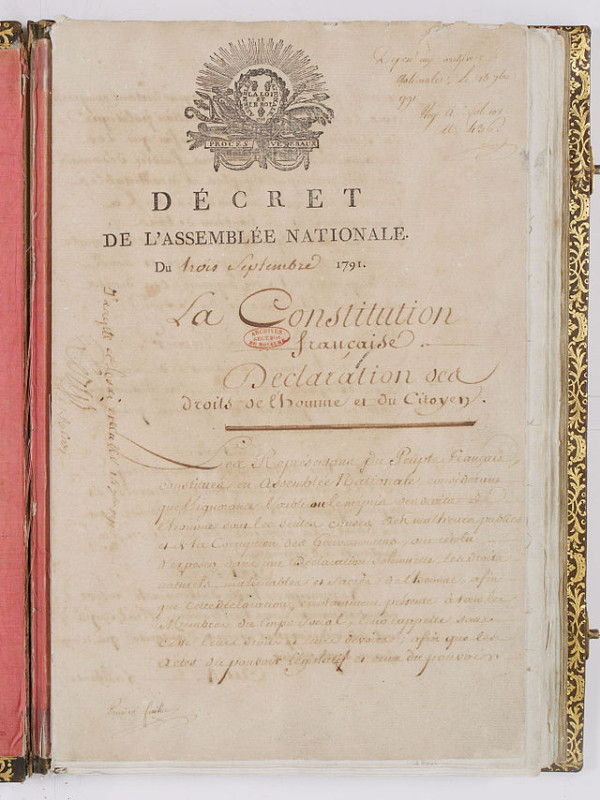 LA LOI
ET
LE ROI
PROCÈS VERBAUX
DÉCRET
DE L'ASSEMBLÉE NATIONALE.
Du trois Septembre 1791.
La Constitution
française
ARCHIVES
DU ROYAUME
Déclaration des
droits de l'homme et du Citoyen.
Les Représentans du Peuple Français,
constitués en Assemblée Nationale, considérant
que l'ignorance, l'oubli ou le mépris des droits de
l'homme sont les seules causes des malheurs publics
et de la Corruption des Gouvernemens, ont résolu
d'exposer dans une Déclaration Solennelle, les Droits
naturels, inaliénables et Sacrés de l'homme, afin
que cette déclaration, constamment présente à tous les
Membres du Corps Social, leur rappelle sans
cesse leurs droits et leurs devoirs; afin que les
Actes du pouvoir législatif et ceux du pouvoir